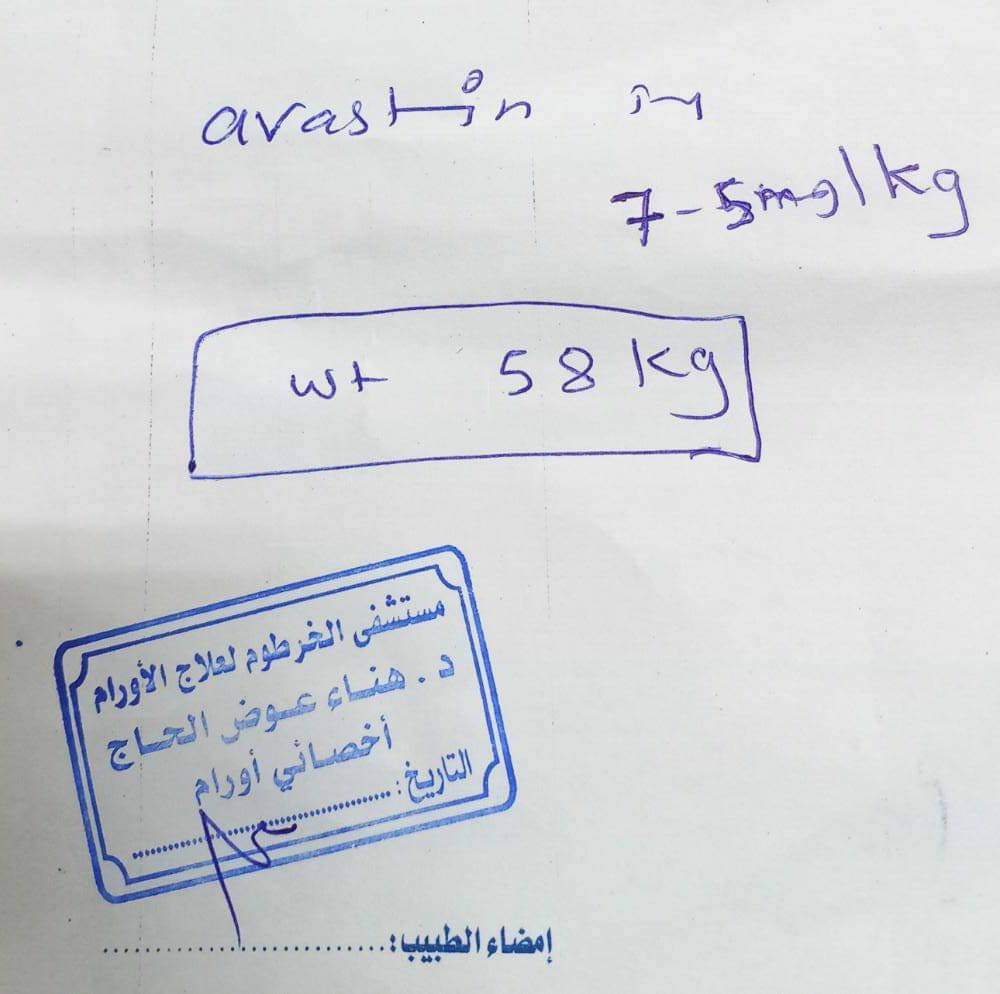 avastin inj
7-5mg/kg
wt 58 kg
مستشفى الخرطوم لعلاج الأورام
د. هناء عوض الحاج
أخصائي أورام
التاريخ:
إمضاء الطبيب: